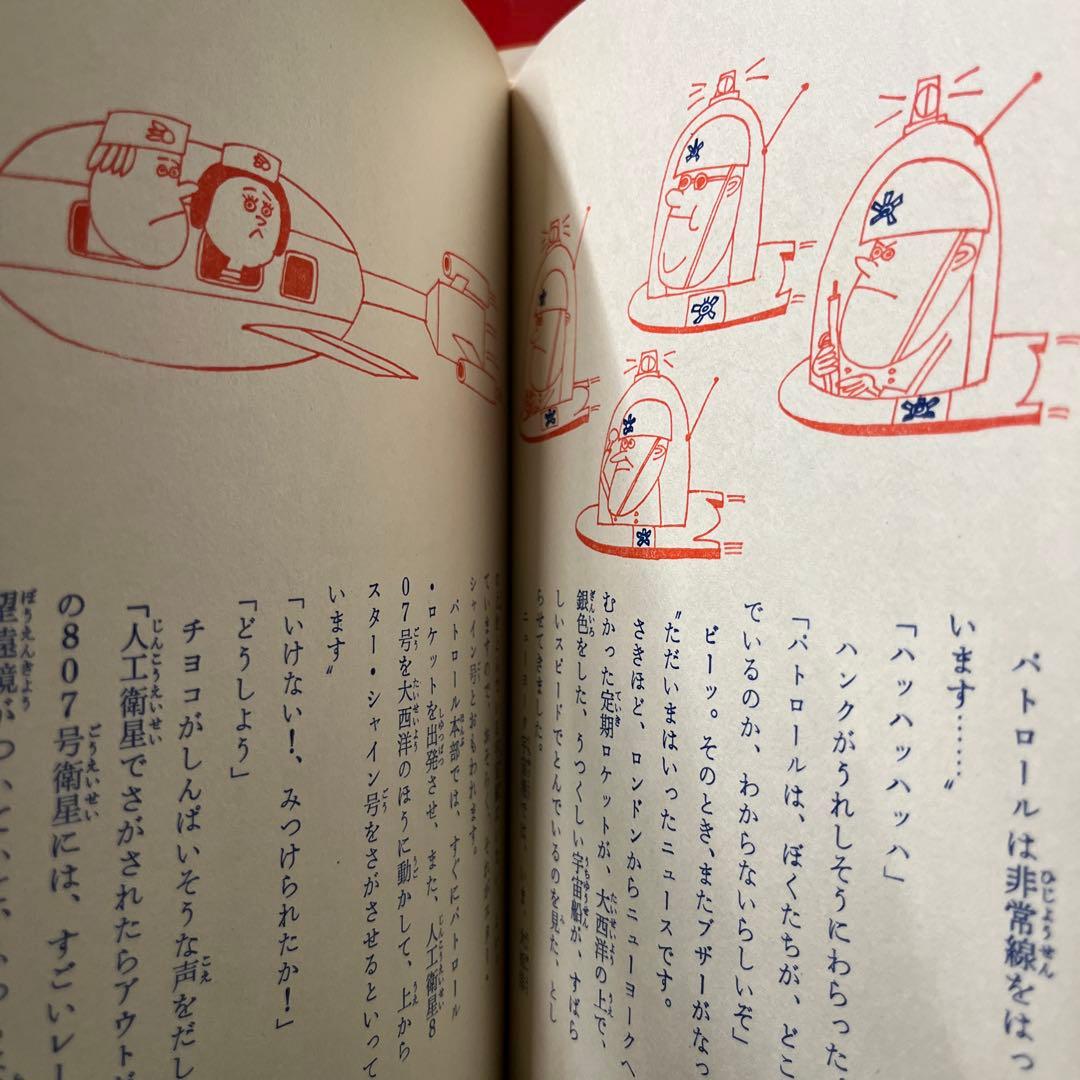 パトロールは非常線をはっ
います……〟
「ハッハッハッハッハ」
ハンクがうれしそうにわらった。
「パトロールは、ぼくたちが、どこ
でいるのか、わからないらしいぞ」
ビーッ。そのとき、またブザーがなっ
〝ただいまはいったニュースです。
さきほど、ロンドンからニューヨークへ
むかった定期ロケットが、大西洋の上で、
銀色をした、うつくしい宇宙船が、すばら
しいスピードでとんでいるのを見た、とし
らせてきました。
ていますので、おそらく、それがスター・
シャイン号とおもわれます。
パトロール本部では、すぐにパトロール
・ロケットを出発させ、また、人工衛星8
07号を大西洋のほうに動かして、上から
スター・シャイン号をさがさせるといって
います〟
「いけない!、みつけられたか!」
「どうしよう」
チヨコがしんぱいそうな声をだし
「人工衛星でさがされたらアウト
の807号衛星には、すごいレー
望遠鏡が